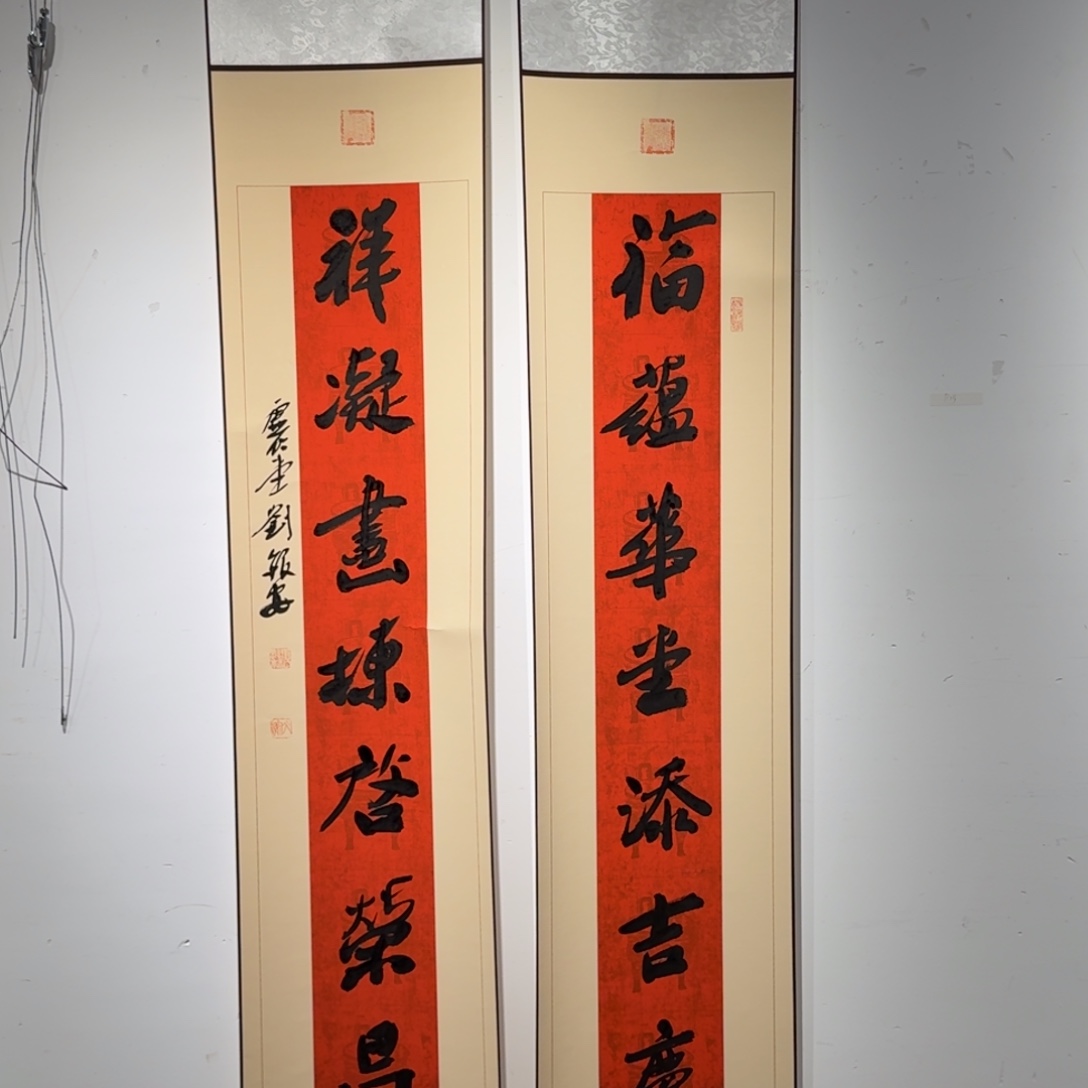 福蘊華堂添吉慶
祥凝畫棟啓榮昌
震堂劉銀安